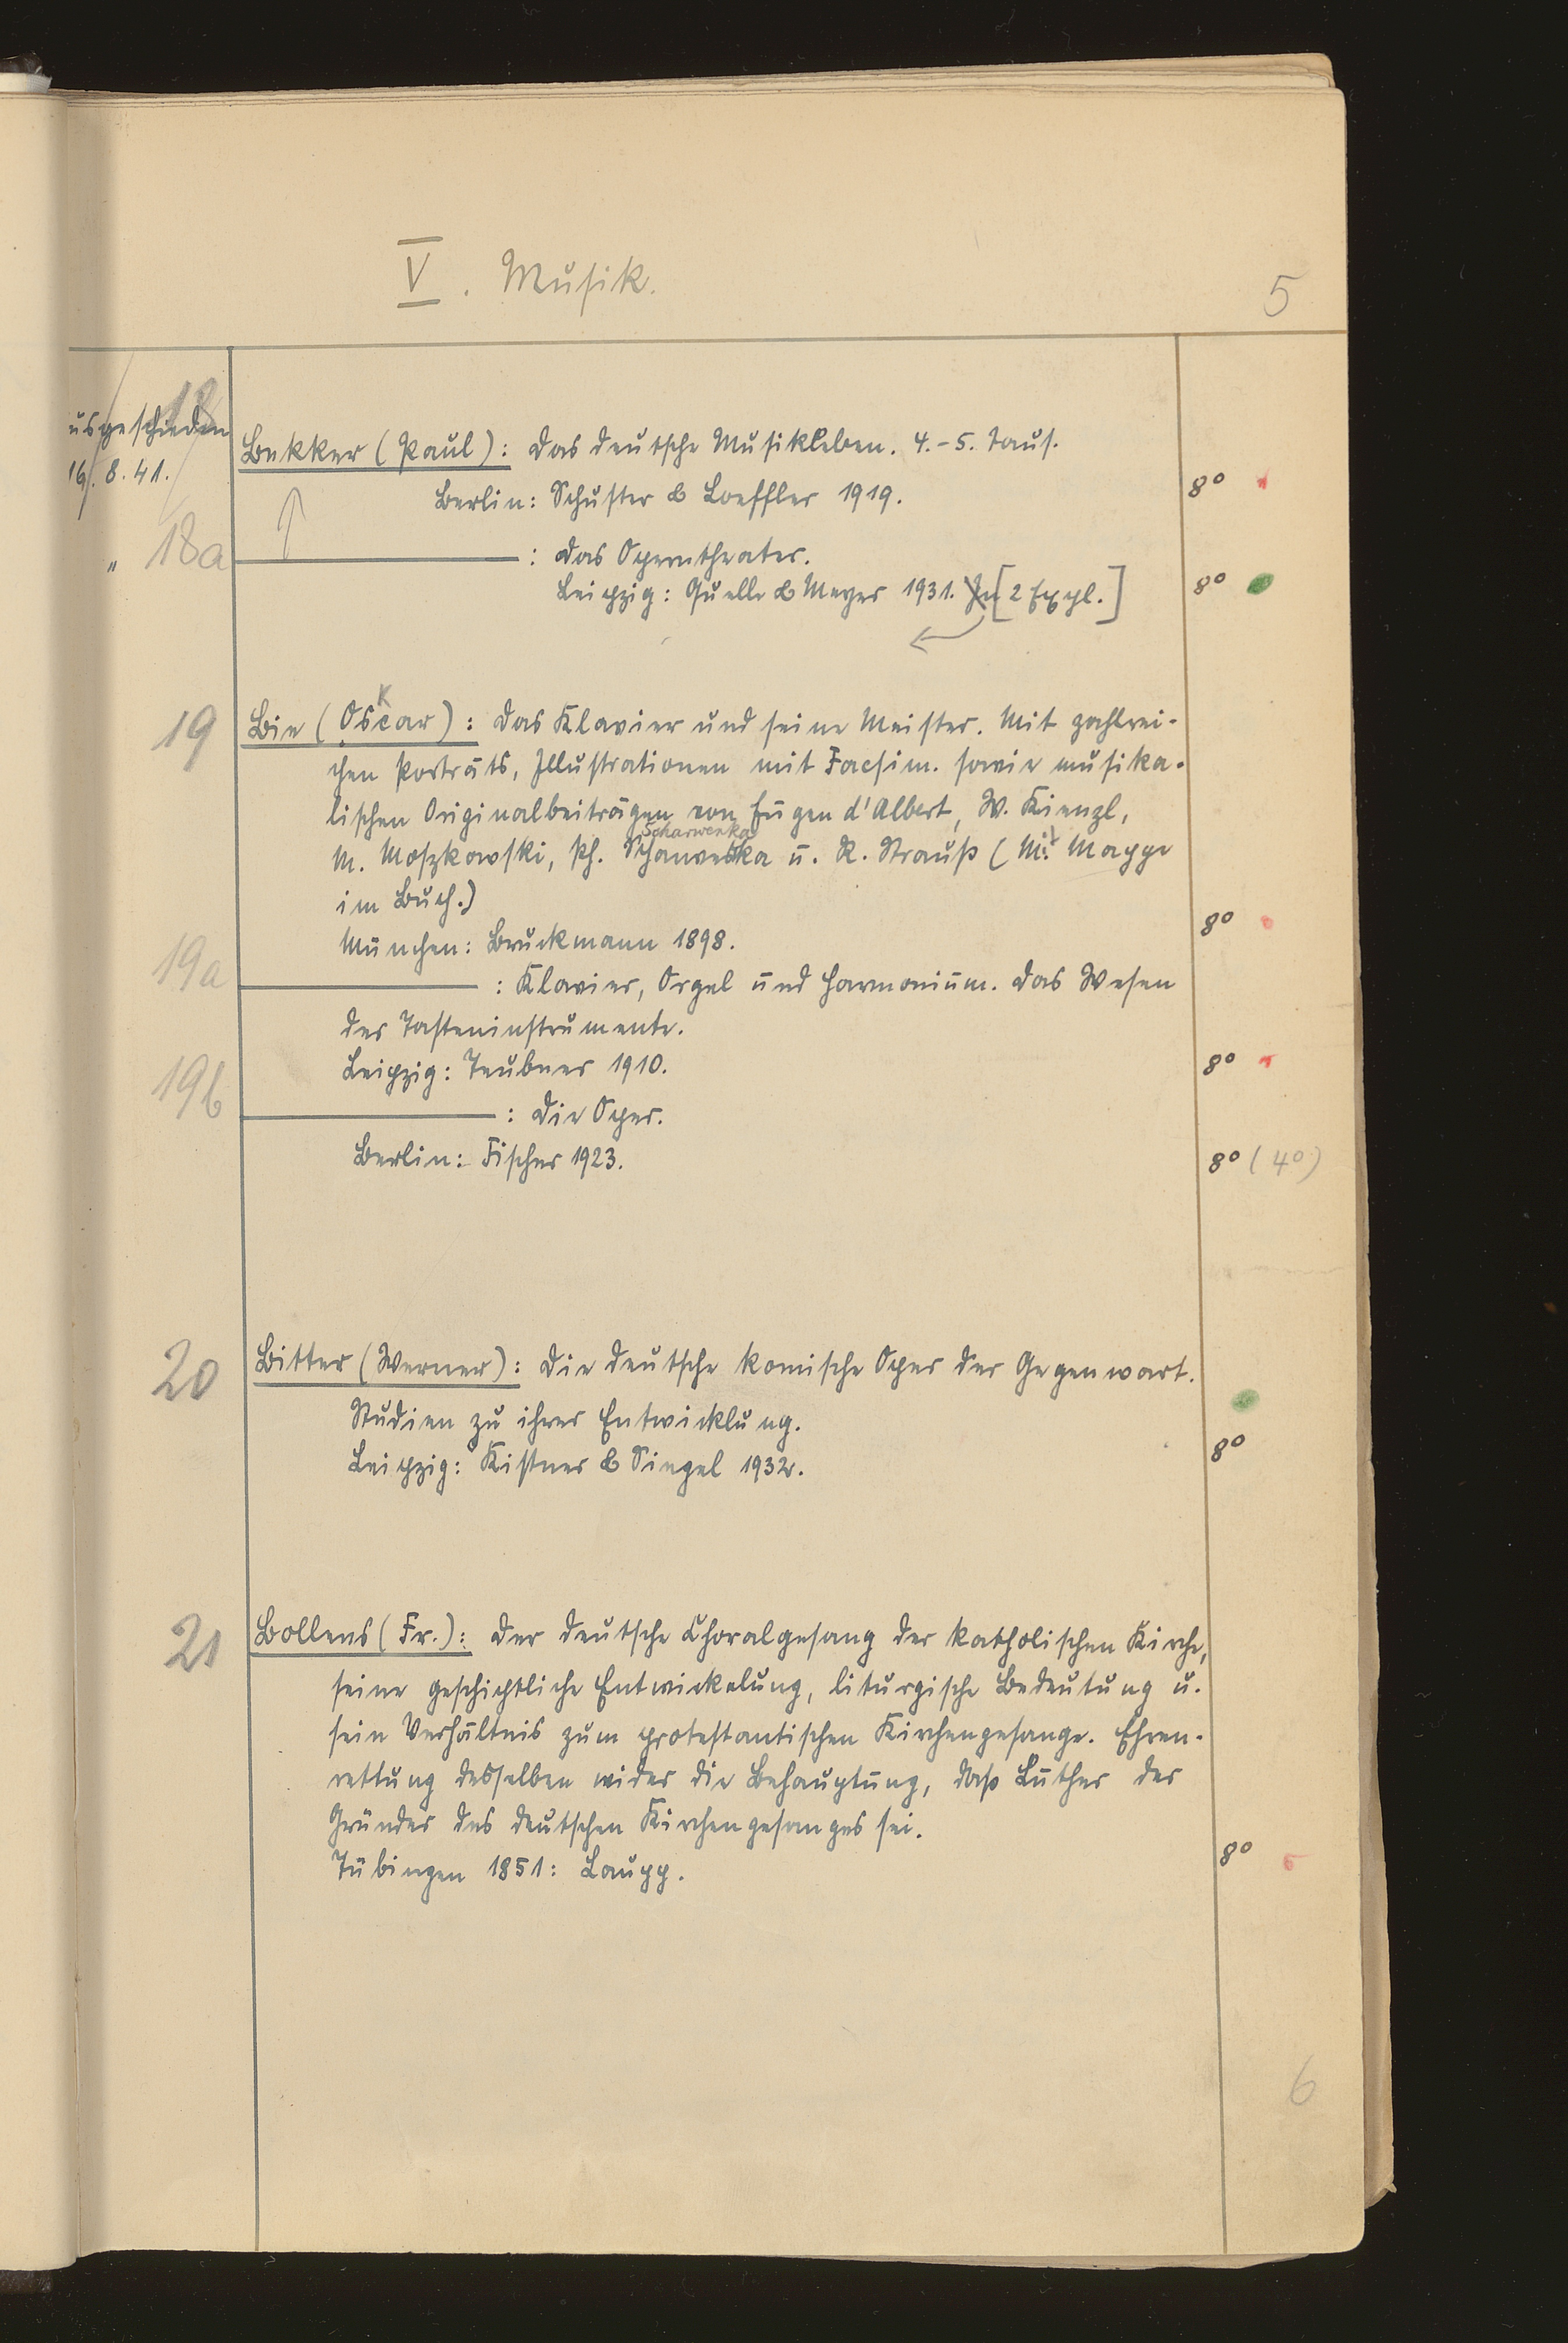 V. Musik.
5
18
usgeschieden
16. 8. 41.
Bekker (Paul): Das deutsche Musikleben. 4.-5. Taus.
Berlin: Schuster & Loeffler 1919.
8°
" 18a
: Das Operntheater.
Leipzig: Quelle & Meyer 1931. In [2 Expl.]
8°
19
k
Bie (Oscar): Das Klavier und seine Meister. Mit zahlrei-
chen Porträts, Illustrationen mit Facsim. sowie musika-
lischen Originalbeiträgen von Eugen d'Albert, W. Kienzl,
Scharwenka
M. Moszkowski, Ph. Schanweska u. R. Strauß (Mit Mappe
im Buch.)
München: Bruckmann 1898.
8°
19a
: Klavier, Orgel und Harmonium. Das Wesen
der Tasteninstrumente.
Leipzig: Teubner 1910.
8°
19b
: Die Oper.
Berlin: Fischer 1923.
8° (4°)
20
Bitter (Werner): Die deutsche komische Oper der Gegenwart.
Studien zu ihrer Entwicklung.
Leipzig: Kistner & Siegel 1932.
8°
21
Bollens (Fr.): Der deutsche Choralgesang der katholischen Kirche,
seine geschichtliche Entwickelung, liturgische Bedeutung u.
sein Verhältnis zum protestantischen Kirchengesange. Ehren-
rettung desselben wider die Behauptung, daß Luther der
Gründer des deutschen Kirchengesanges sei.
Tübingen 1851: Laupp.
8°
6